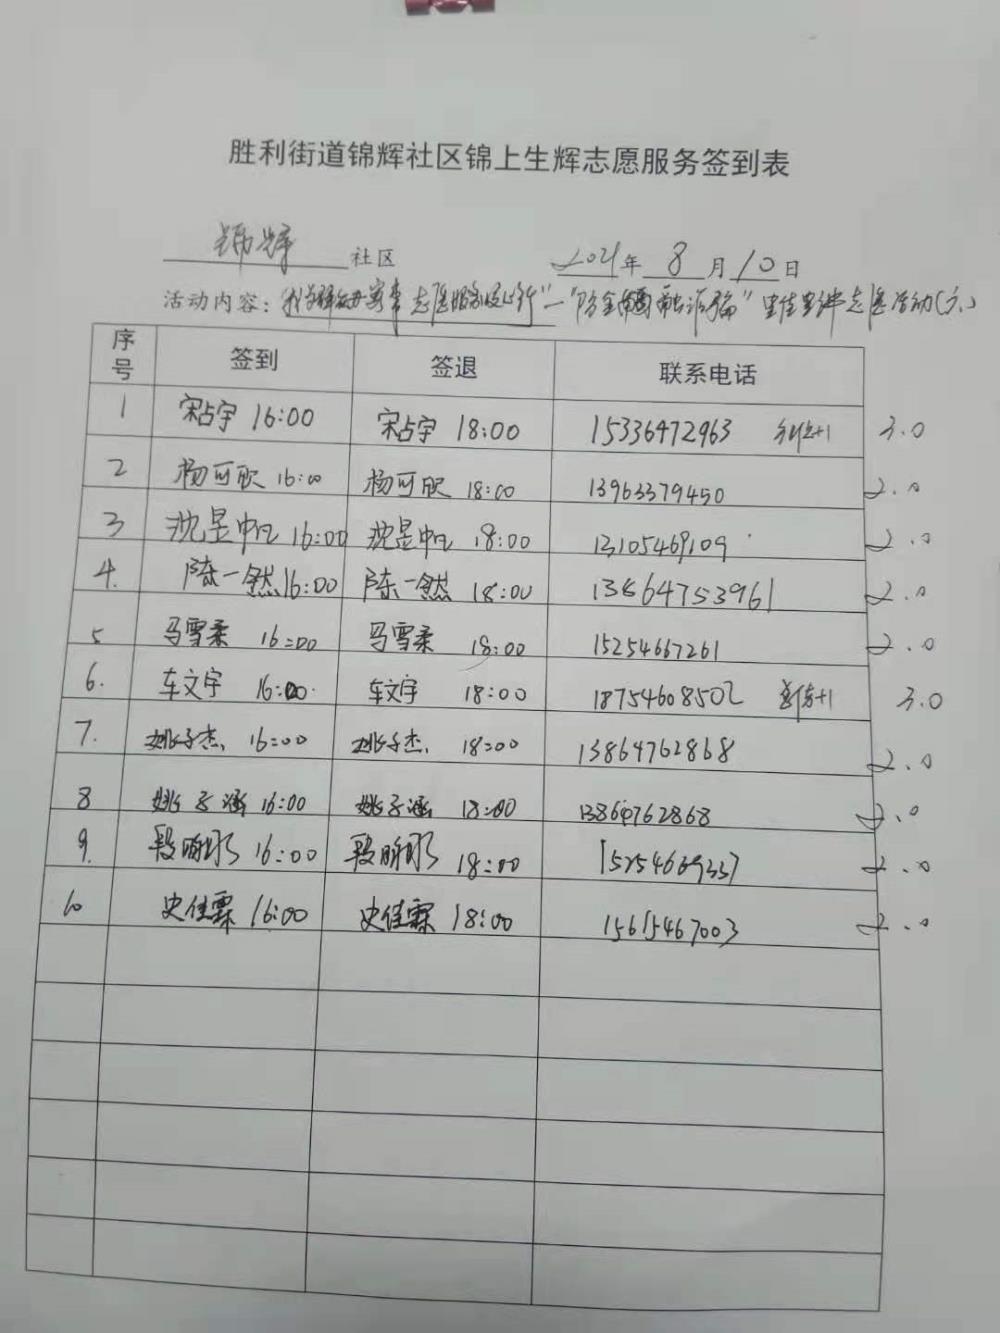 胜利街道锦辉社区锦上生辉志愿服务签到表
锦辉 社区 2021年 8 月 10 日
活动内容： 志愿服务 行"—"防金融诈骗" 志愿活动(六)
序号 签到 签退 联系电话
1 宋占宇 16:00 宋占宇 18:00 15336472963 +1 3.0
2 杨可欣 16:00 杨可欣 18:00 13963379450 2.0
3 沈昱 16:00 沈昱 18:00 13105469109 2.0
4. 陈一然 16:00 陈一然 18:00 13864753961 2.0
5 马雪柔 16:00 马雪柔 18:00 15254667261 2.0
6. 车文宇 16:00 车文宇 18:00 18754608502 +1 3.0
7. 姚子杰. 16:00 姚子杰. 18:00 13864762868 2.0
8 姚子涵 16:00 姚子涵 18:00 13864762868 2.0
9. 段 16:00 段 18:00 15254639337 2.0
10 史佳霖 16:00 史佳霖 18:00 15615467003 2.0